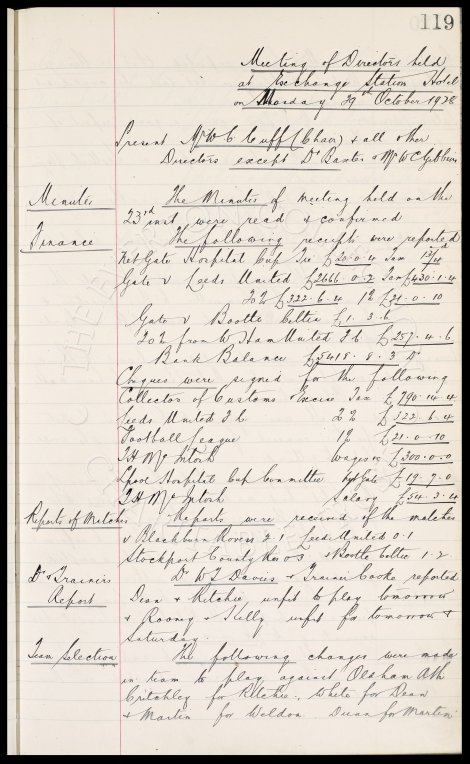 119
Meeting of Directors held
at Exchange Station Hotel
on Monday 29th October 1928
Present Mr W C Cuff (Chair) & all other
Directors except Dr Baxter & Mr W C Gibbins
Minutes The Minutes of meeting held on the
23rd inst were read & confirmed
Finance The following receipts were reported
Net Gate Hospital Cup Tie £20.0.4 Tax
Gate v Leeds United £2666.0.2 Tax £430.1.4
20% £322.6.4 1% £21.0.10
Gate v Bootle Celtic £1.3.6
20% from W Ham United F.C. £257.4.6
Bank Balance £5418.8.3 Dr
Cheques were signed for the following
Collector of Customs & Excise Tax £790.14.4
Leeds United F.C. 20% £322.6.4
Football League 1% £21.0.10
T H McIntosh wages £300.0.0
Lpool Hospital Cup Committee Gate £19.7.0
T H McIntosh Salary £54.3.4
Reports of Matches Reports were received of the matches
v Blackburn Rovers 2.1 Leeds United 0.1
Stockport County Res 0.5 & Bootle Celtic 1.2.
Dr & Trainers Report Dr W F Davies & Trainer Cooke reported
Dean & Ritchie unfit to play tomorrow
& Rooney & Kelly unfit for tomorrow &
Saturday.
Team Selection The following changes were made
in team to play against Oldham Ath
Critchley for Ritchie, White for Dean
& Martin for Weldon. Dunn for Martin